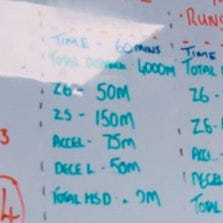 RUNS
TIME - 60 MINS
TOTAL DISTANCE 4000M
Z6 - 50M
Z5 - 150M
ACCEL - 75M
DECEL - 50M
TOTAL HSD -
3
4
TIME
TOTAL
Z6 -
Z6 -
ACCL -
DECEL
TOTAL